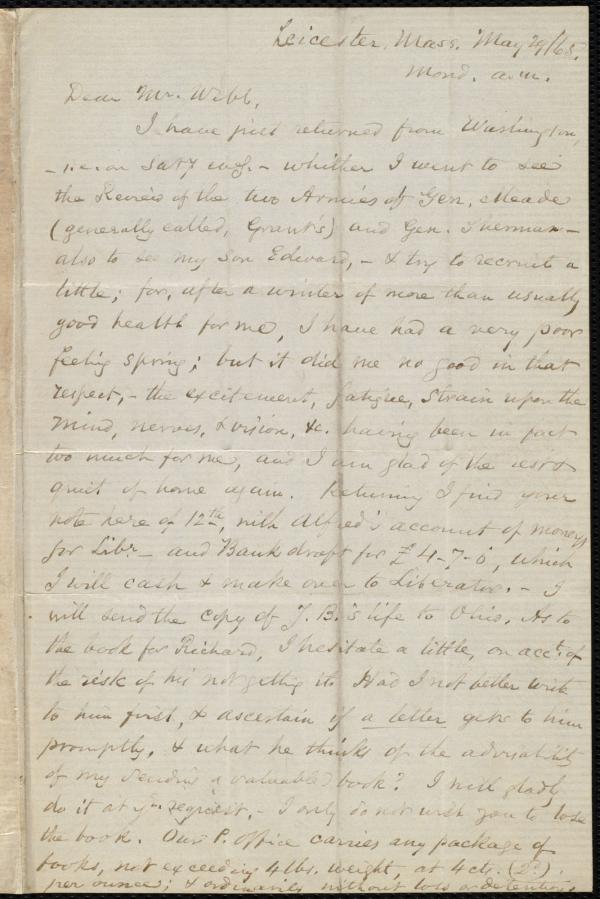 Leicester, Mass. May 29/65.
Mond. a.m.
Dear Mr. Webb,
I have just returned from Washington,
- i.e. on Saty evg. - whither I went to see
the Review of the two Armies of Gen. Meade
(generally called, Grant's) and Gen. Sherman -
also to see my son Edward, - & try to recruit a
little; for, after a winter of more than usually
good health for me, I have had a very poor
feeling spring; but it did me no good in that
respect, - the excitement, fatigue, strain upon the
mind, nerves, & vision, &c. having been in fact
too much for me, and I am glad of the rest &
quiet of home again. Returning I find your
note here of 12th, with Alfred's account of moneys
for Libr. - and Bank draft for £4-7-0, which
I will cash & make over to Liberator. - I
will send the copy of J. B.'s life to Ohio. As to
the book for Richard, I hesitate a little, on acct. of
the risk of his not getting it. Had I not better write
to him first, & ascertain if a letter gets to him
promptly, & what he thinks of the advisability
of my sending a valuable book? I will gladly
do it at yr. request. - I only do not wish you to lose
the book. Our P. Office carries any package of
books, not exceeding 4 lbs. weight, at 4 cts. (2d.)
per ounce; & ordinarily without loss or detention.